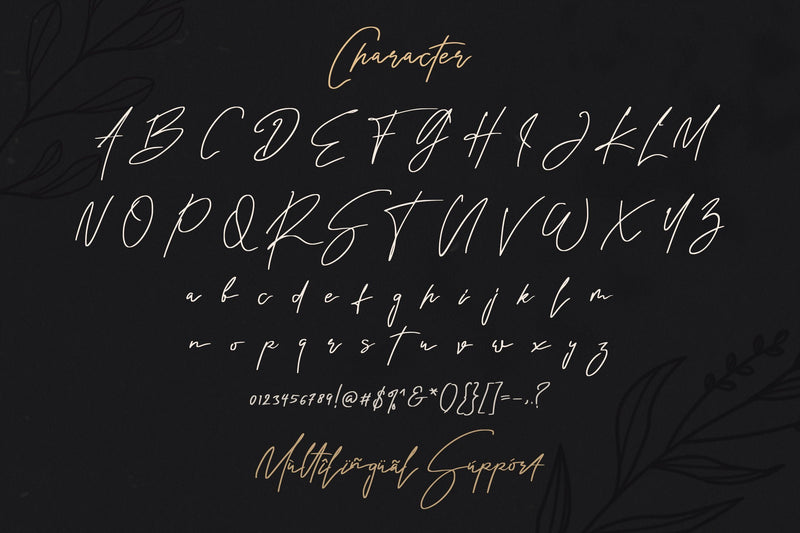 Character
A B C D E F G H I J K L M
N O P Q R S T U V W X Y Z
a b c d e f g h i j k l m
n o p q r s t u v w x y z
0123456789!@#$%^&*(){}[]=-,.?
Múltîlïñgüãl Súppórt